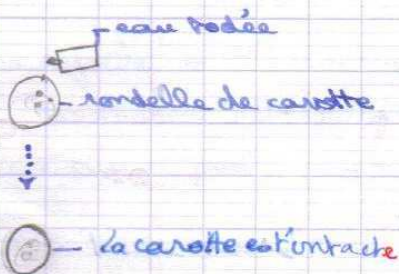 eau iodée
rondelle de carotte
La carotte est intacte